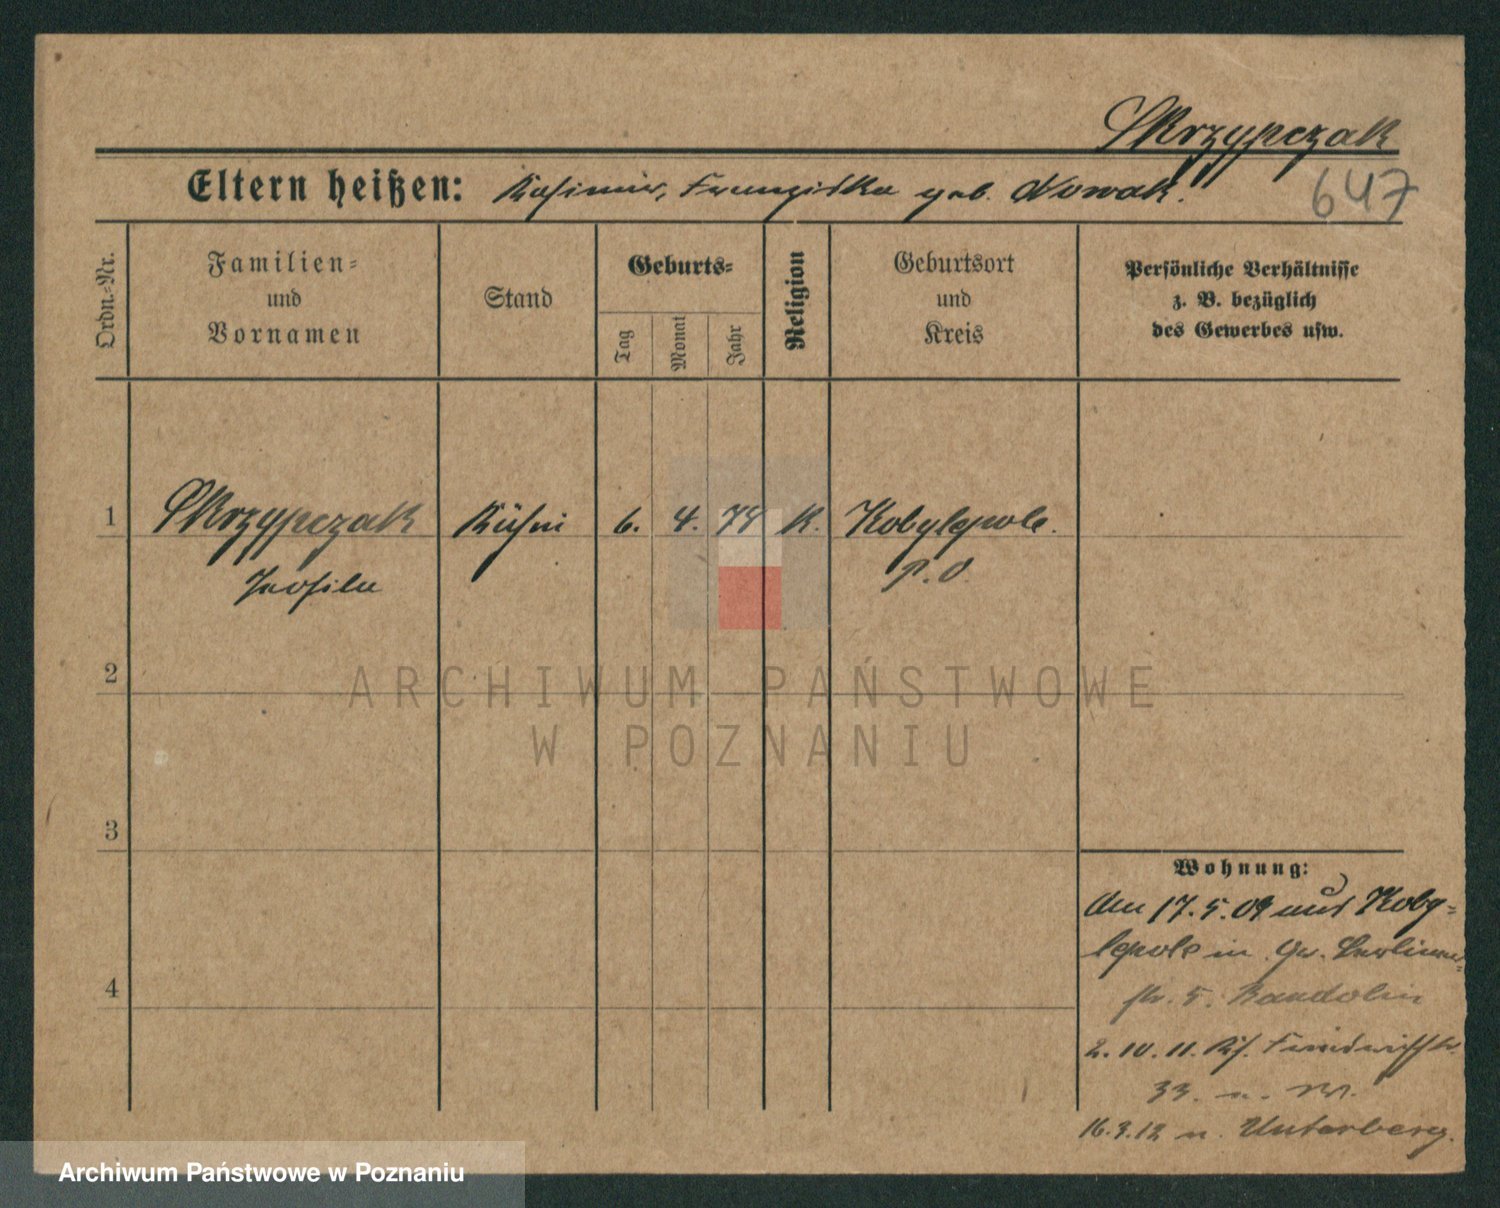 Skrzypczak
Eltern heißen: Kasimir, Franziska geb. Nowak.
647
Ordn.=Nr.
Familien=
und
Vornamen
Stand
Geburts=
Tag
Monat
Jahr
Religion
Geburtsort
und
Kreis
Persönliche Verhältnisse
z. B. bezüglich
des Gewerbes usw.
1 Skrzypczak 6. 4. K. Kobylepole.
Teofila P. O.
2
ARCHIWUM PAŃSTWOWE
W POZNANIU
3
Wohnung:
Am 17. 5. 09 aus Koby=
lepole in Gr. Berliner=
str. 5. Bandolin
4
2. 10. 11. Friedrichstr.
33.
16.3.12 n. Unterberg.
Archiwum Państwowe w Poznaniu